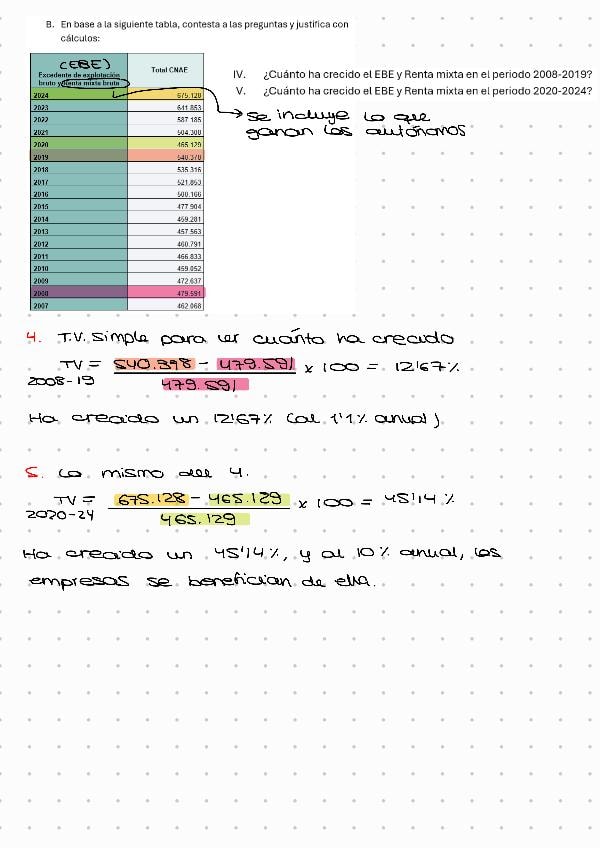 B. En base a la siguiente tabla, contesta a las preguntas y justifica con
cálculos:
(EBE)
Excedente de explotación
bruto y Renta mixta bruta
Total CNAE
2024 675.128
2023 641.853
2022 587.185
2021 504.308
2020 465.129
2019 540.378
2018 535.316
2017 521.853
2016 500.166
2015 477.904
2014 459.281
2013 457.563
2012 460.791
2011 466.833
2010 459.052
2009 472.637
2008 479.591
2007 462.068
IV. ¿Cuánto ha crecido el EBE y Renta mixta en el periodo 2008-2019?
V. ¿Cuánto ha crecido el EBE y Renta mixta en el periodo 2020-2024?
→ se incluye lo que
ganan los autónomos
4. T.V. Simple para ver cuánto ha crecido
TV = 540.398 - 479.591 x 100 = 12'67%
2008-19 479.591
Ha crecido un 12'67% (al 1'1% anual).
5. Lo mismo del 4.
TV = 675.128 - 465.129 x 100 = 45'14%
2020-24 465.129
Ha crecido un 45'14%, y al 10% anual, las
empresas se benefician de ella.